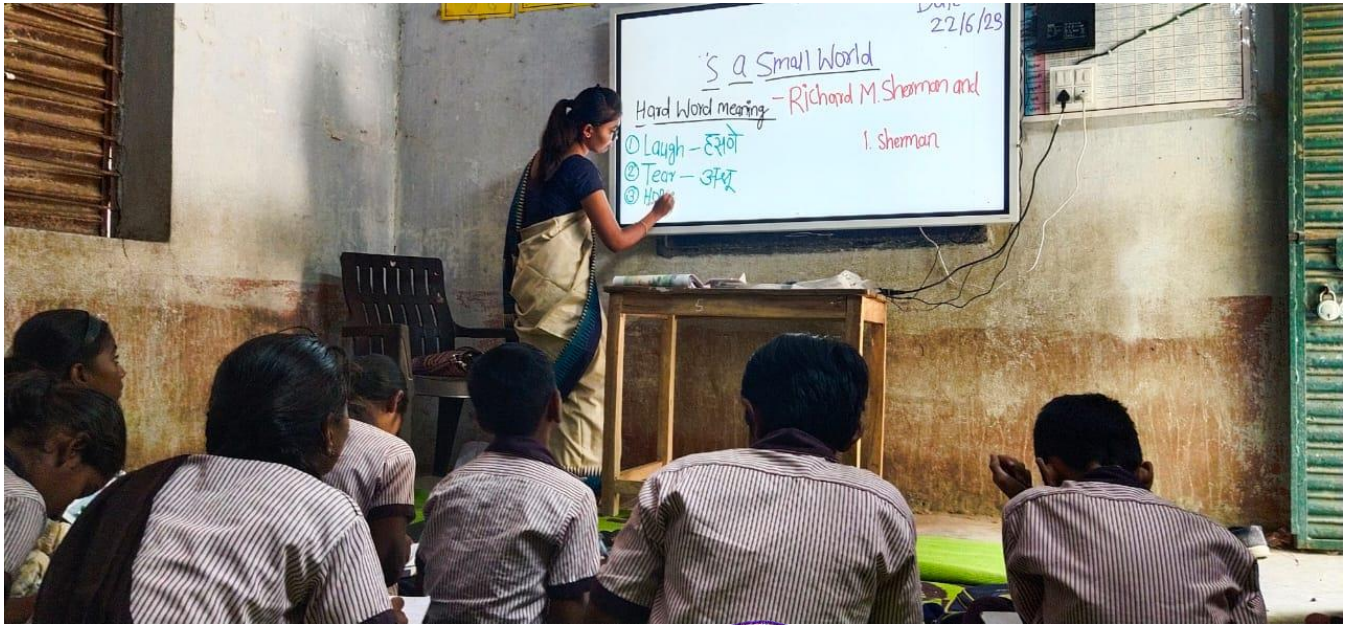 Date
22/6/23
's a Small World
Hard Word meaning - Richard M. Sherman and
1. Sherman
① Laugh - हसणे
② Tear - अश्रू
③
S